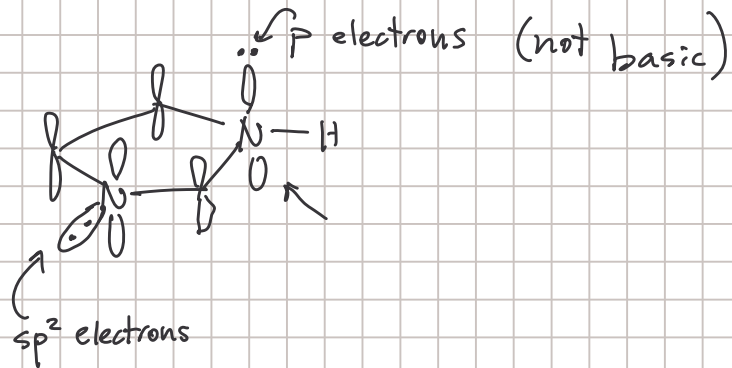 p electrons (not basic)
N—H
N
sp² electrons